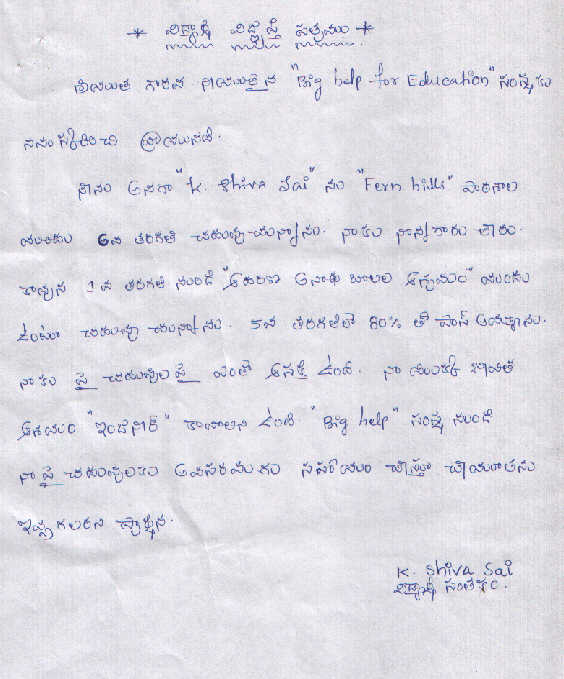 * విద్యార్థి విజ్ఞప్తి పత్రము *
గౌరవ నీయులైన "Big help for Education" సంస్థకు
నమస్కరించి వ్రాయునది.
నేను అనగా "K. Shiva Sai" ను "Fern hills" పాఠశాల
యందు 6వ తరగతి చదువుచున్నాను. నాకు నాన్నగారు లేరు.
కావున 1వ తరగతి నుండి అనాథ బాలల ఆశ్రమం" యందు
ఉంటూ చదువుచున్నాను. 5వ తరగతిలో 80% తో పాస్ అయ్యాను.
నాకు పై చదువులపై ఎంతో ఆసక్తి ఉంది. నా యొక్క జీవిత
ఆశయం "ఇంజనీర్" కావాలని ఉంది "Big help" సంస్థ నుండి
నా పై చదువులకు అవసరమగు సహాయం చేస్తూ చేయూతను
ఇవ్వగలరని ప్రార్థన.
K. Shiva Sai
విద్యార్థి సంతకం.